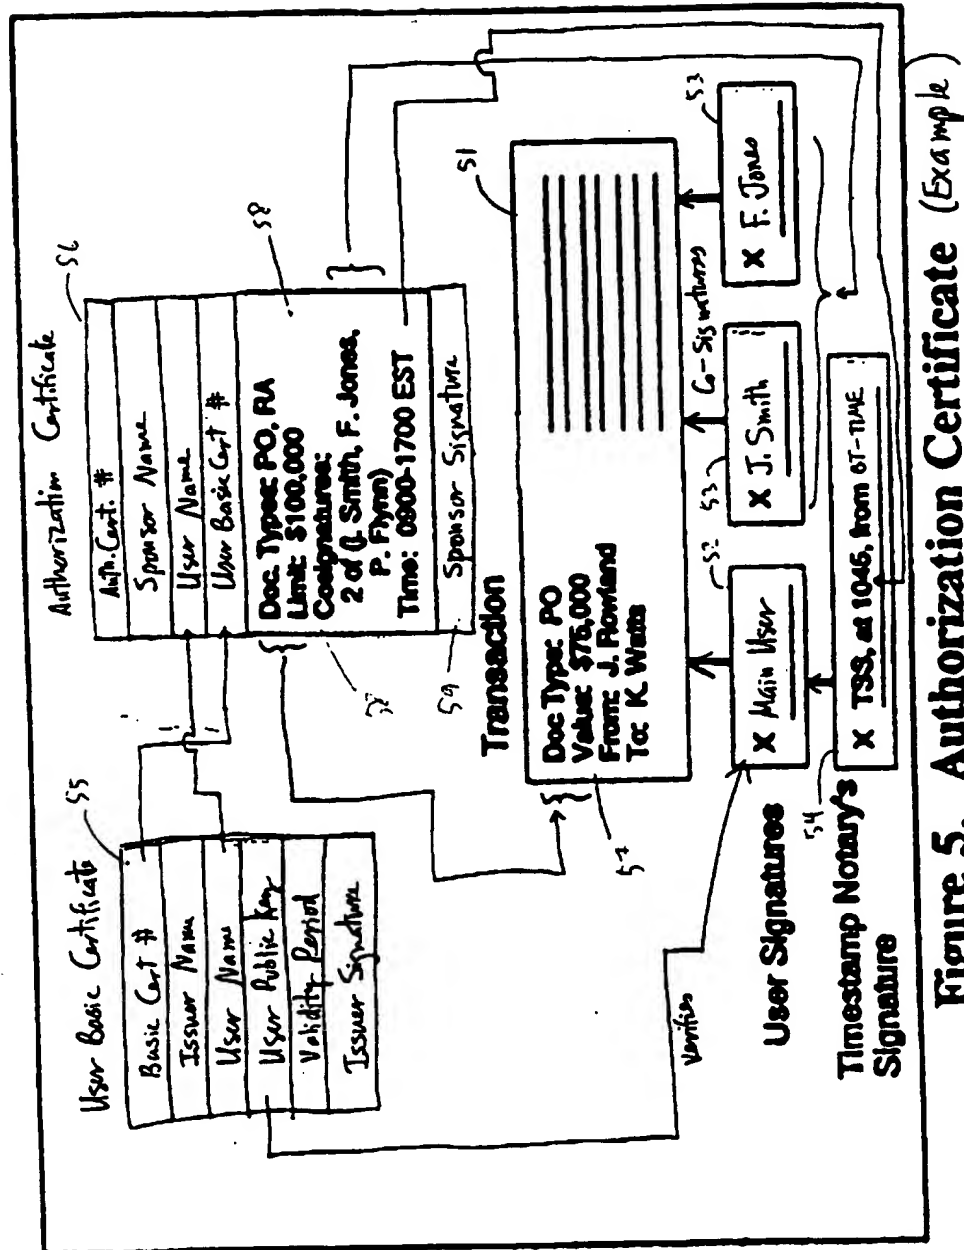 User Basic Certificate
55
Basic Cert #
Issuer Name
User Name
User Public Key
Validity Period
Issuer Signature
Authorization Certificate
56
Auth. Cert. #
Sponsor Name
User Name
User Basic Cert #
Doc. Types: PO, RA
Limit: $100,000
Cosignatures:
2 of (J. Smith, F. Jones,
P. Flynn)
Time: 0900-1700 EST
58
Sponsor Signature
59
Transaction
51
Doc Type: PO
Value: $75,000
From: J. Rowland
To: K. Watts
57
Verifies
User Signatures
52
X Main User
Co-Signatures
53
X J. Smith
53
X F. Jones
Timestamp Notary's
Signature
54
X TSS, at 1045, from
Figure 5. Authorization Certificate (Example)